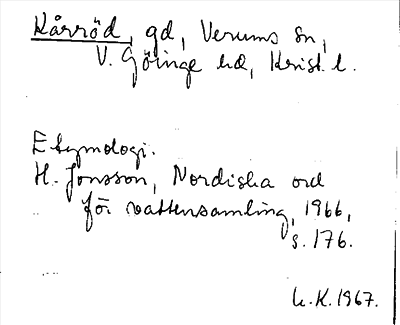 Kårröd, gd, Verums sn,
V. Göinge hd, Krist. l.
Etymologi.
H. Jonsson, Nordiska ord
för vattensamling, 1966,
s. 176.
L.K. 1967.